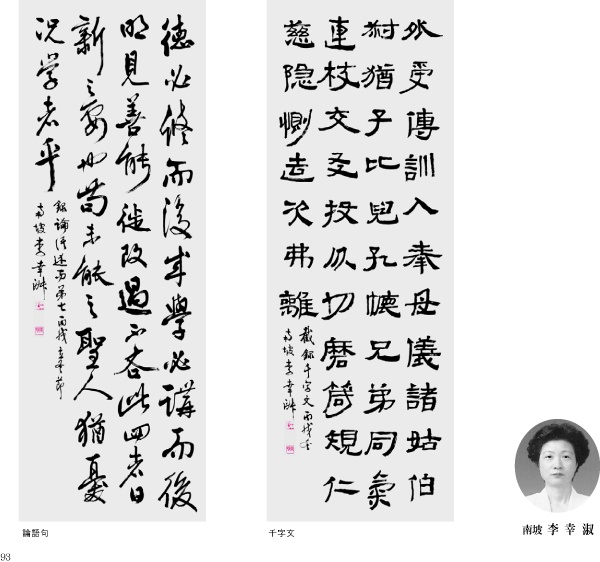 德必修而後成學必講而後
明見善能徙改過不吝此四者日
新之要也苟未能之聖人猶憂
況学者乎
錄論語述而第七丙戌立冬節
南坡李幸淑
論語句
外受傅訓入奉母儀諸姑伯
叔猶子比兒孔懷兄弟同氣
連枝交友投分切磨箴規仁
慈隐惻造次弗離
截錄千字文丙戌冬
南坡李幸淑
千字文
南坡 李幸淑
93